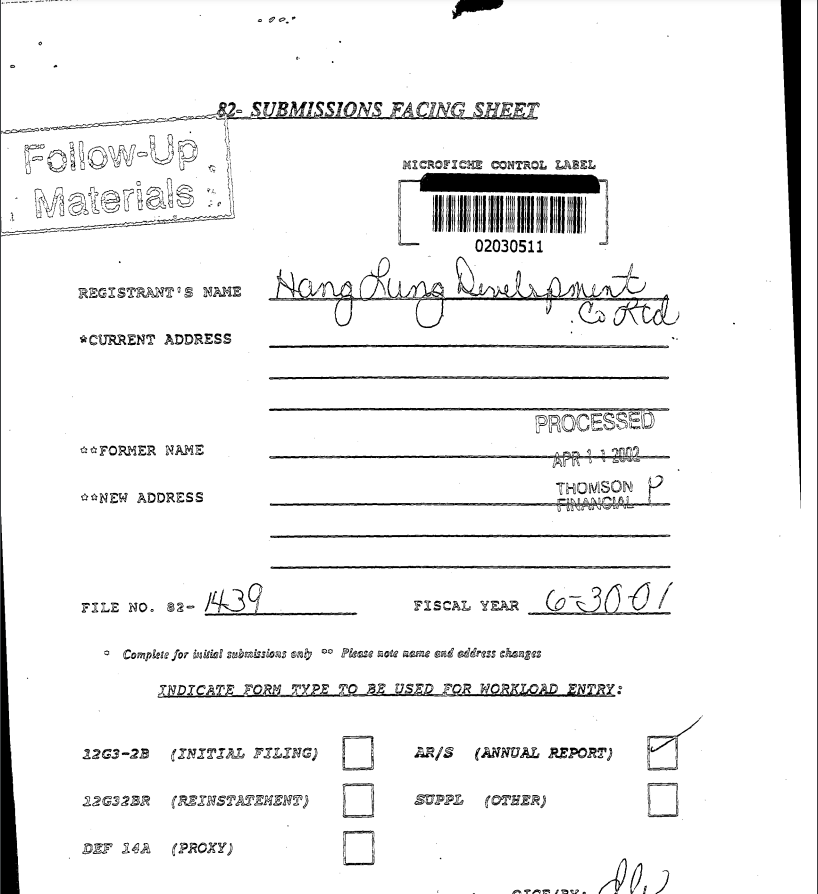 82- SUBMISSIONS FACING SHEET
Follow-Up
Materials
MICROFICHE CONTROL LABEL
02030511
REGISTRANT'S NAME Hang Lung Development
Co Ltd
*CURRENT ADDRESS
PROCESSED
**FORMER NAME
APR 11 2002
THOMSON P
FINANCIAL
**NEW ADDRESS
FILE NO. 82- 1439 FISCAL YEAR 6-30-01
* Complete for initial submissions only ** Please note name and address changes
INDICATE FORM TYPE TO BE USED FOR WORKLOAD ENTRY:
12G3-2B (INITIAL FILING) AR/S (ANNUAL REPORT)
12G32BR (REINSTATEMENT) SUPPL (OTHER)
DEF 14A (PROXY)